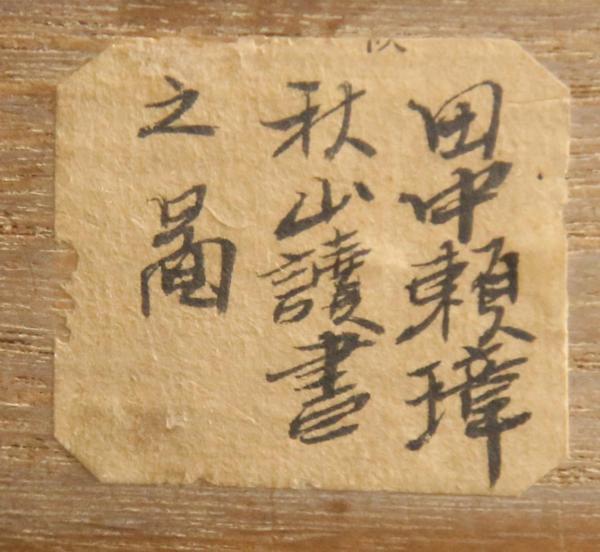 田中頼璋
秋山讀書
之圖